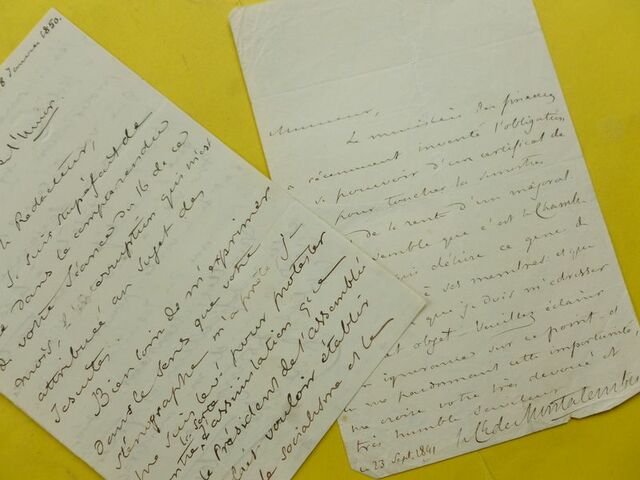 8 Janvier 1850.
l'Univers
Rédacteur,
Je suis stupéfait de
dans le compte rendu
de votre séance du 16 de ce
mois, l'interruption qui m'est
attribuée au sujet des
Jésuites.
Bien loin de m'exprimer
dans le sens que votre
sténographe m'a prêté je
me suis levé pour protester
contre l'assimilation que
le Président de l'assemblée
vouloir établir
le socialisme et le
Monsieur,
Le ministère des finances
a récemment inventé l'obligation
se pourvoir d'un certificat de
pour toucher la
de la rente d'un majorat.
semble que c'est la Chambre
délivre ce genre de
à ses membres, et que
que je dois m'adresser
cet objet. Veuillez éclairer
ignorances sur ce point, et
me pardonnant cette importunité,
me croire votre très dévoué et
très humble serviteur
le Cte de Montalembert
ce 23 Sept. 1841